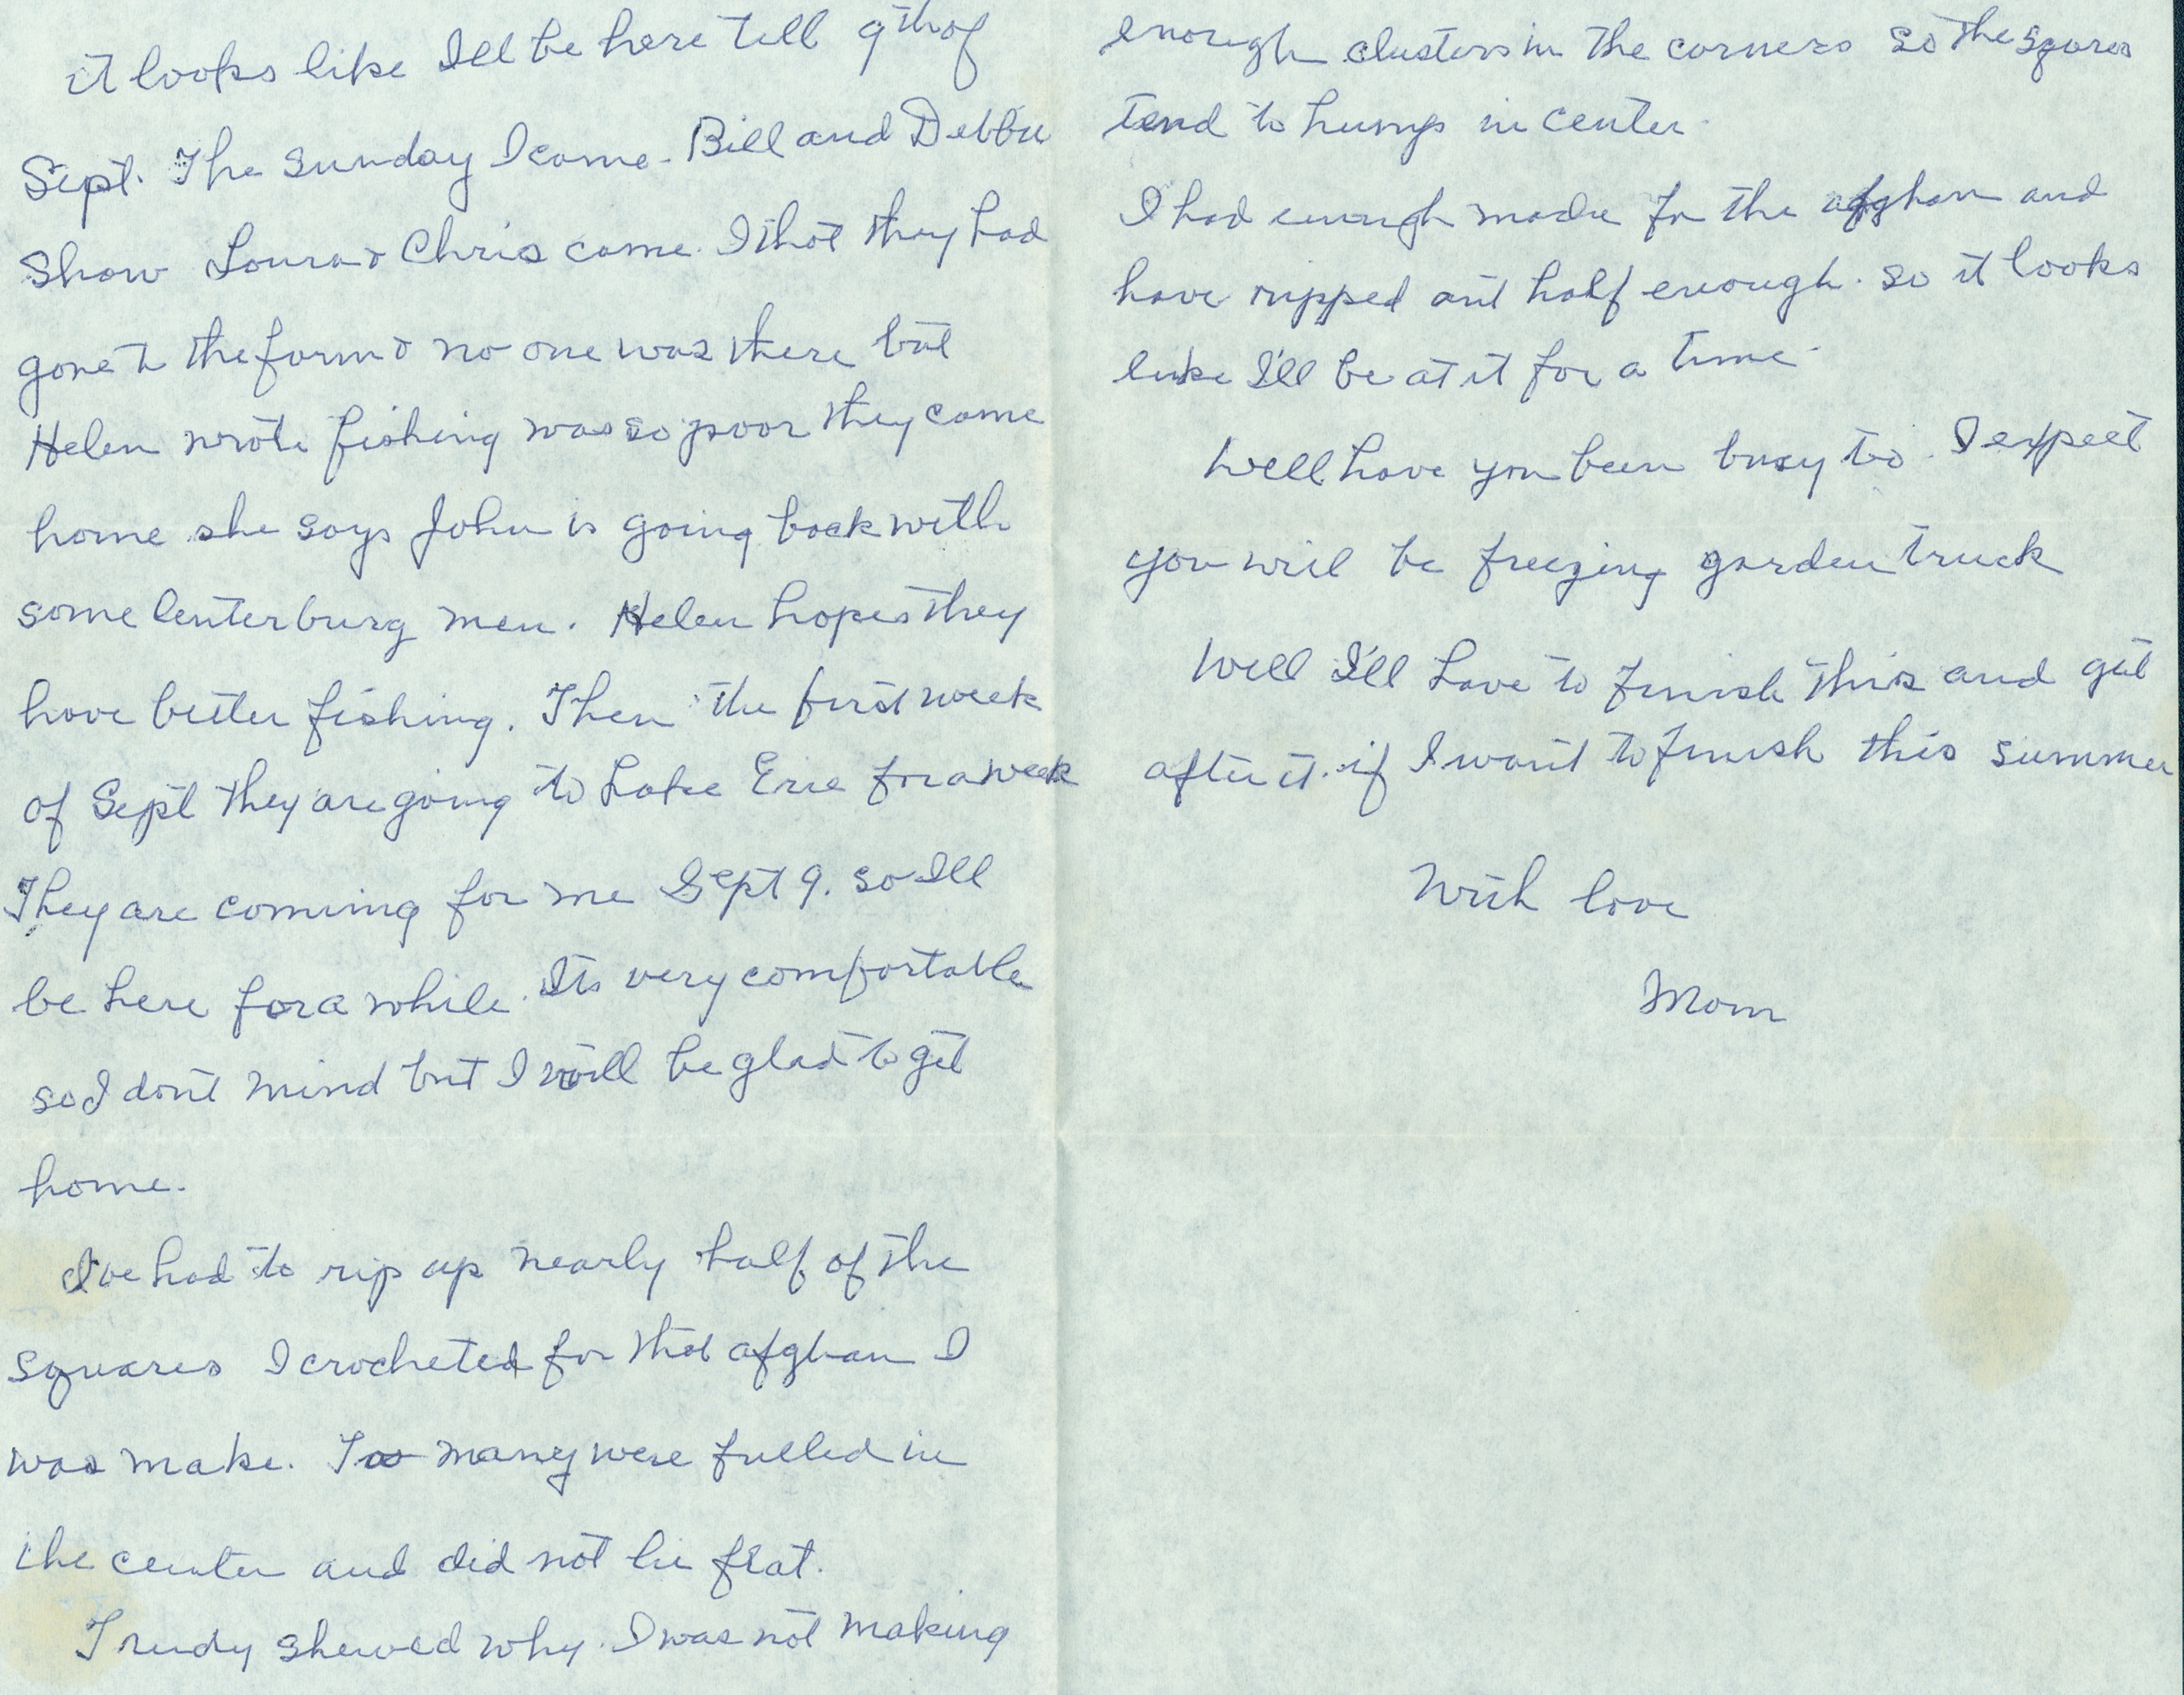 it looks like Ill be here till 9th of
Sept. The Sunday I came. Bill and Debbie
Shaw Laura & Chris came. I thot they had
gone to the farm & no one was there but
Helen wrote fishing was so poor they came
home she says John is going back with
some Centerburg men. Helen hopes they
have better fishing. Then the first week
of Sept they are going to Lake Erie for a week
They are comming for me Sept 9. so Ill
be here for a while. Its very comfortable
so I dont mind but I will be glad to get
home.
I've had to rip up nearly half of the
squares I crocheted for that afghan I
was make. Too many were fulled in
the center and did not lie flat.
Trudy showed why. I was not making
enough clusters in the corners so the sqares
tend to hump in center.
I had enough made for the afghan and
have ripped out half enough. so it looks
like I'll be at it for a time.
Well have you been busy to. I expect
you will be freezing garden truck
Well I'll have to finish this and get
after it. if I want to finish this summer
With love
Mom